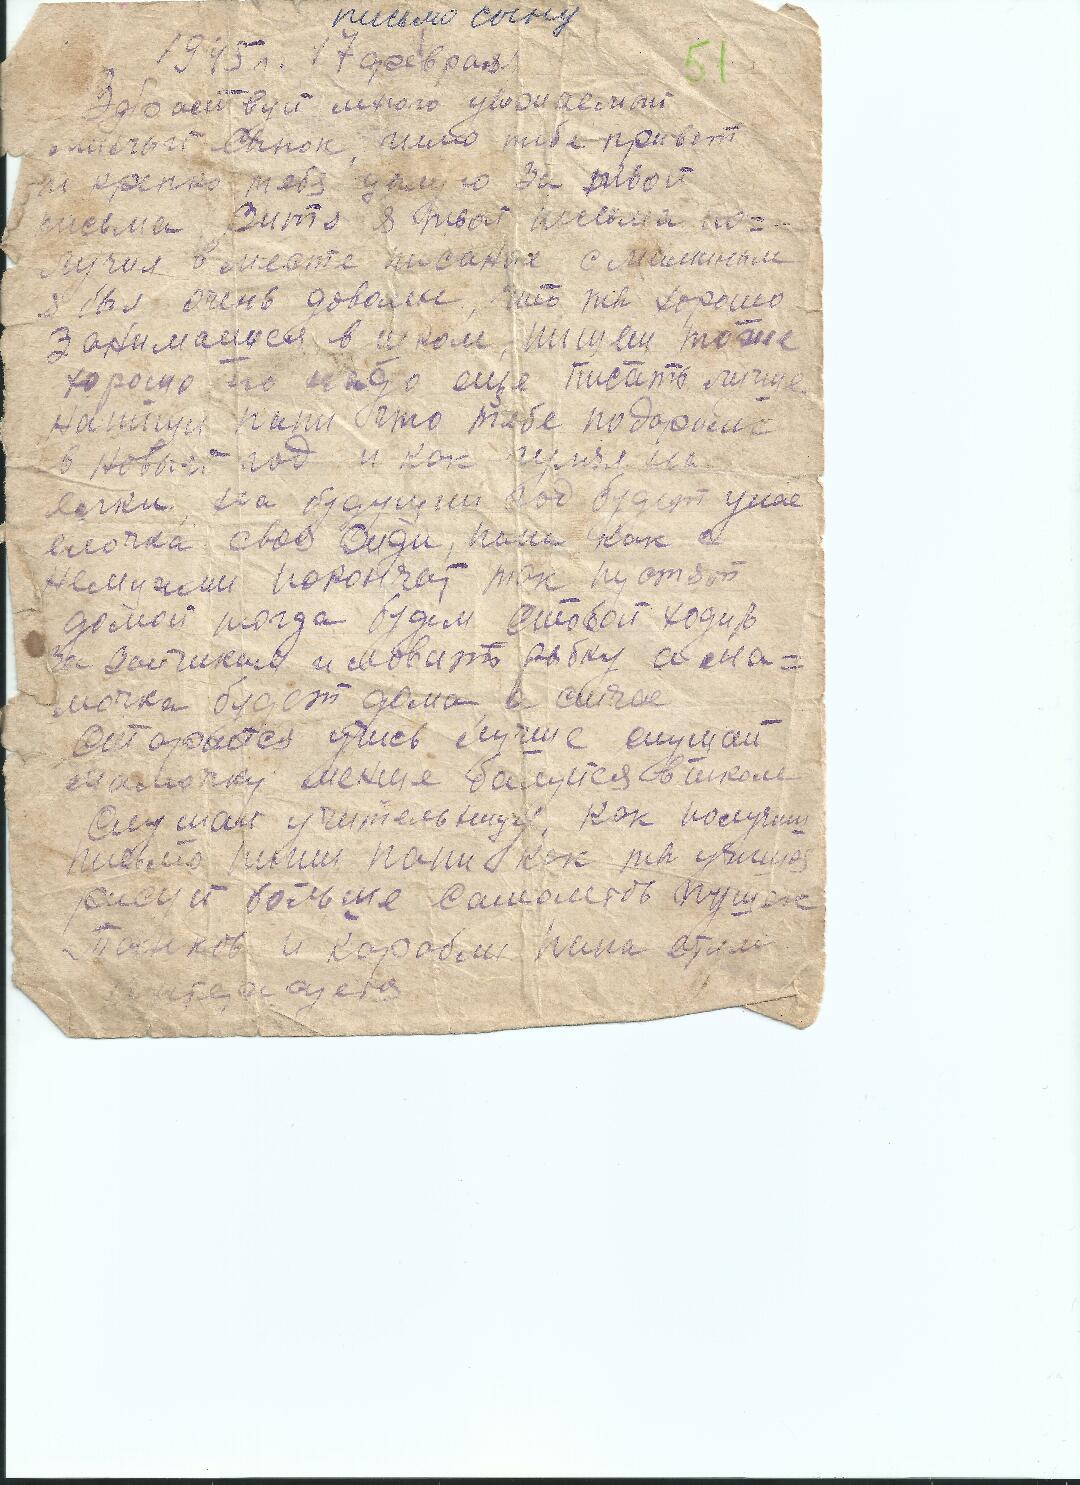 письмо сыну
1945 г. 17 февраля
51
Здраствуй много уважаемый
милый Сынок, шлю тебе привет
и крепко тебя цалую За твои
письма Витя я твои письма по=
лучил вместе писаные с маминым
я был очень доволен, что ты хорошо
Занимаишся в школе, пишеш тоже
хорошо но надо еще писать лучше
Напиши папи что тебе подарили
в новый год и как гулял на
елки, на будущий год будет у нас
елочка своя папа как с
Немцами покончат так пустят
домой тогда будем стобой ходить
За Зайчиками и ловить рыбку а ма=
мочка будет дома а сичас
Старайся учись лучше слушай
мамочку меньше балуйся в школе
Слушай учительницу, как получиш
письмо пиши папи как ты учишся
рисуй больше самолетов пушек
Танков и корабли папа этим
интерисуется